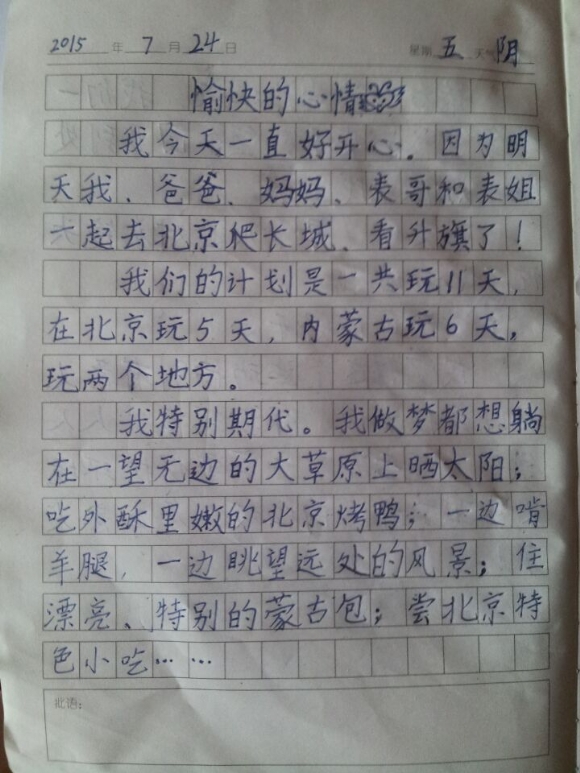 2015 年 7 月 24 日 星期 五 天气 阴
愉快的心情
我今天一直好开心。因为明
天我、爸爸、妈妈、表哥和表姐
一起去北京爬长城、看升旗了！
我们的计划是一共玩11天，
在北京玩5天，内蒙古玩6天，
玩两个地方。
我特别期代。我做梦都想躺
在一望无边的大草原上晒太阳；
吃外酥里嫩的北京烤鸭；一边啃
羊腿，一边眺望远处的风景；住
漂亮、特别的蒙古包；尝北京特
色小吃……
批语：